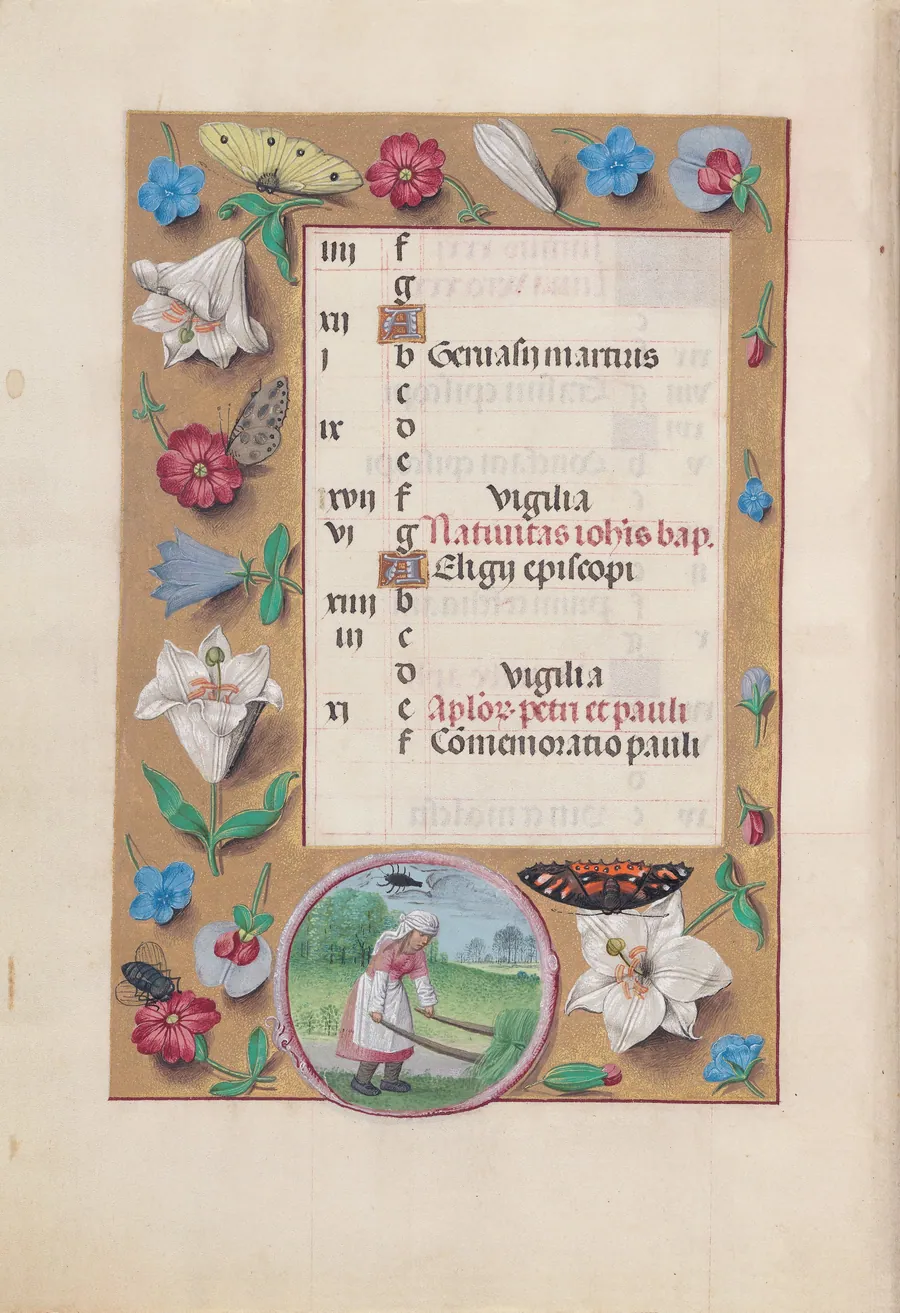 iiij f
g
xij A
j b Geruasij martiris
c
ix d
e
xvij f vigilia
vj g Natiuitas ioh̄is bap.
A Eligij episcopi
xiiij b
iij c
d vigilia
xj e Aplōꝝ· petri et pauli
f Cōmemoratio pauli